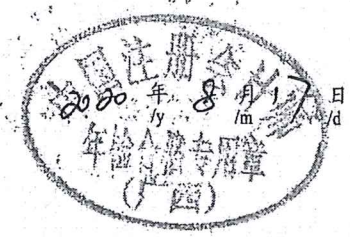 中国注册会计师
2020 年 8 月 17 日
/y /m /d
年检合格专用章
(广西)